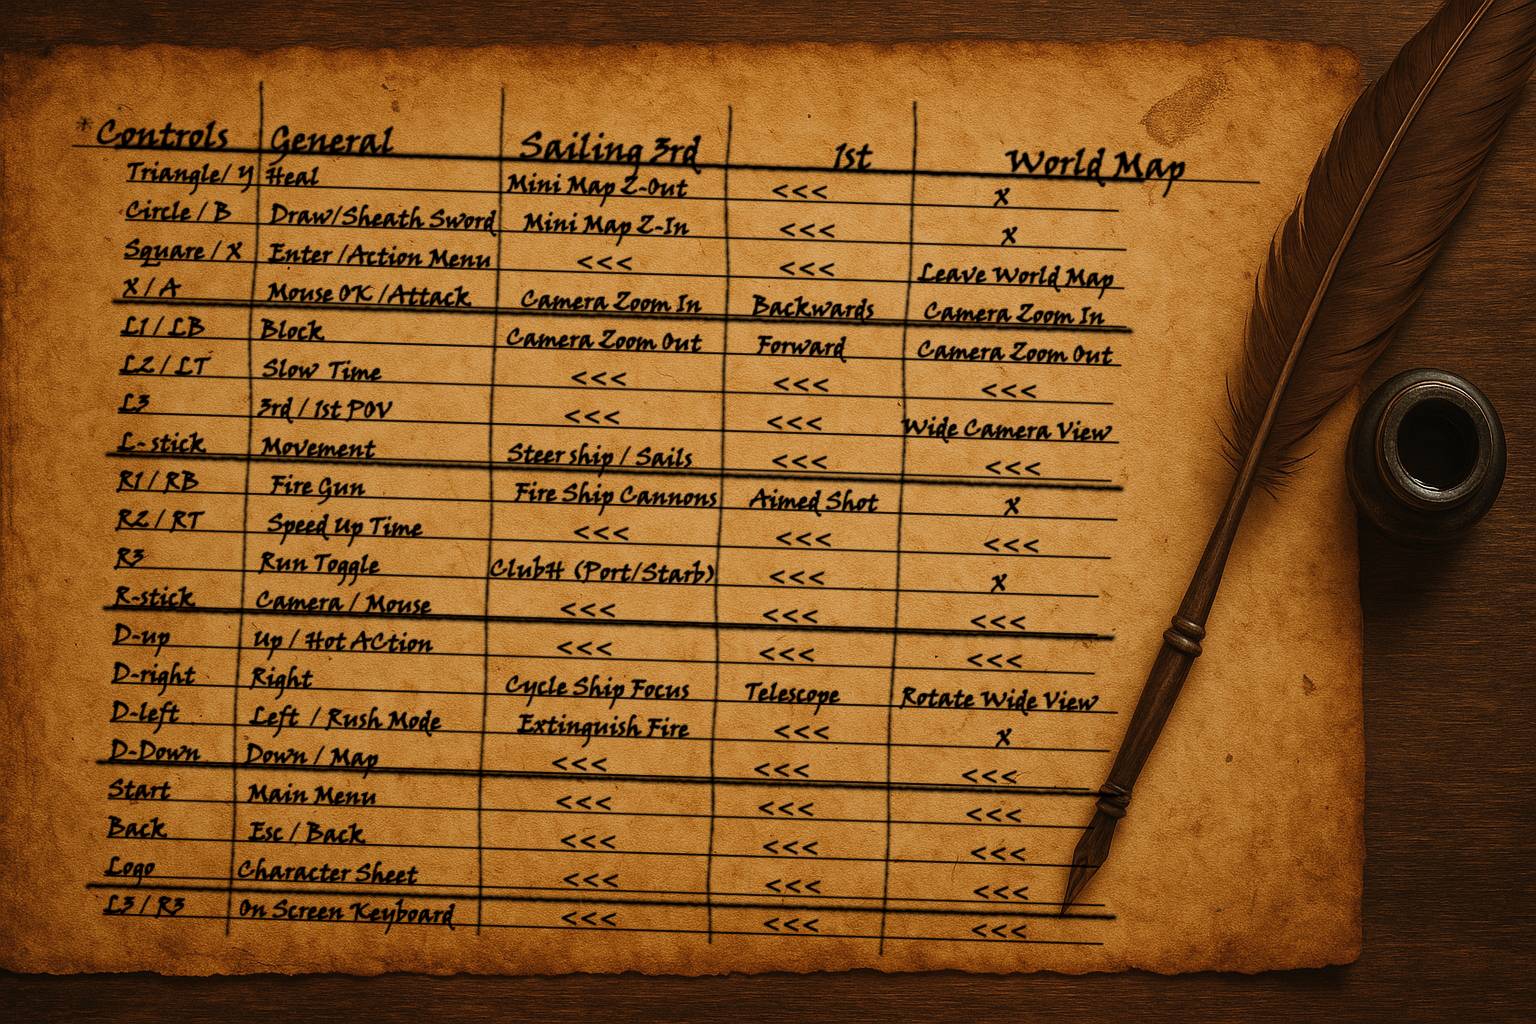 * Controls General Sailing 3rd 1st World Map
Triangle/ Y Heal Mini Map Z-Out <<< x
Circle / B Draw/Sheath Sword Mini Map Z-In <<< x
Square / X Enter /Action Menu <<< <<< Leave World Map
X / A Mouse OK /Attack Camera Zoom In Backwards Camera Zoom In
L1 / LB Block Camera Zoom Out Forward Camera Zoom Out
L2 / LT Slow Time <<< <<< <<<
L3 3rd / 1st POV <<< <<< Wide Camera View
L- stick Movement Steer ship / Sails <<< <<<
R1 / RB Fire Gun Fire Ship Cannons Aimed Shot x
R2 / RT Speed Up Time <<< <<< <<<
R3 Run Toggle ClubH (Port/Starb) <<< x
R-stick Camera / Mouse <<< <<< <<<
D-up Up / Hot ACtion <<< <<< <<<
D-right Right Cycle Ship Focus Telescope Rotate Wide View
D-left Left / Rush Mode Extinguish Fire <<< x
D-Down Down / Map <<< <<< <<<
Start Main Menu <<< <<< <<<
Back Esc / Back <<< <<< <<<
Logo Character Sheet <<< <<< <<<
L3 / R3 On Screen Keyboard <<< <<< <<<